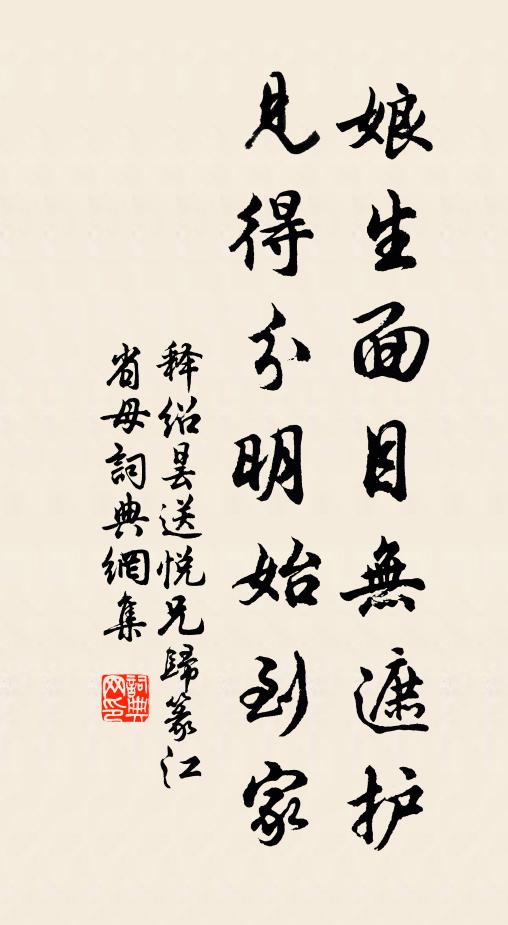 娘生面目無遮护
見得分明始到家
释绍昙送悦兄歸篆江
省母詞典網集
詞典網印